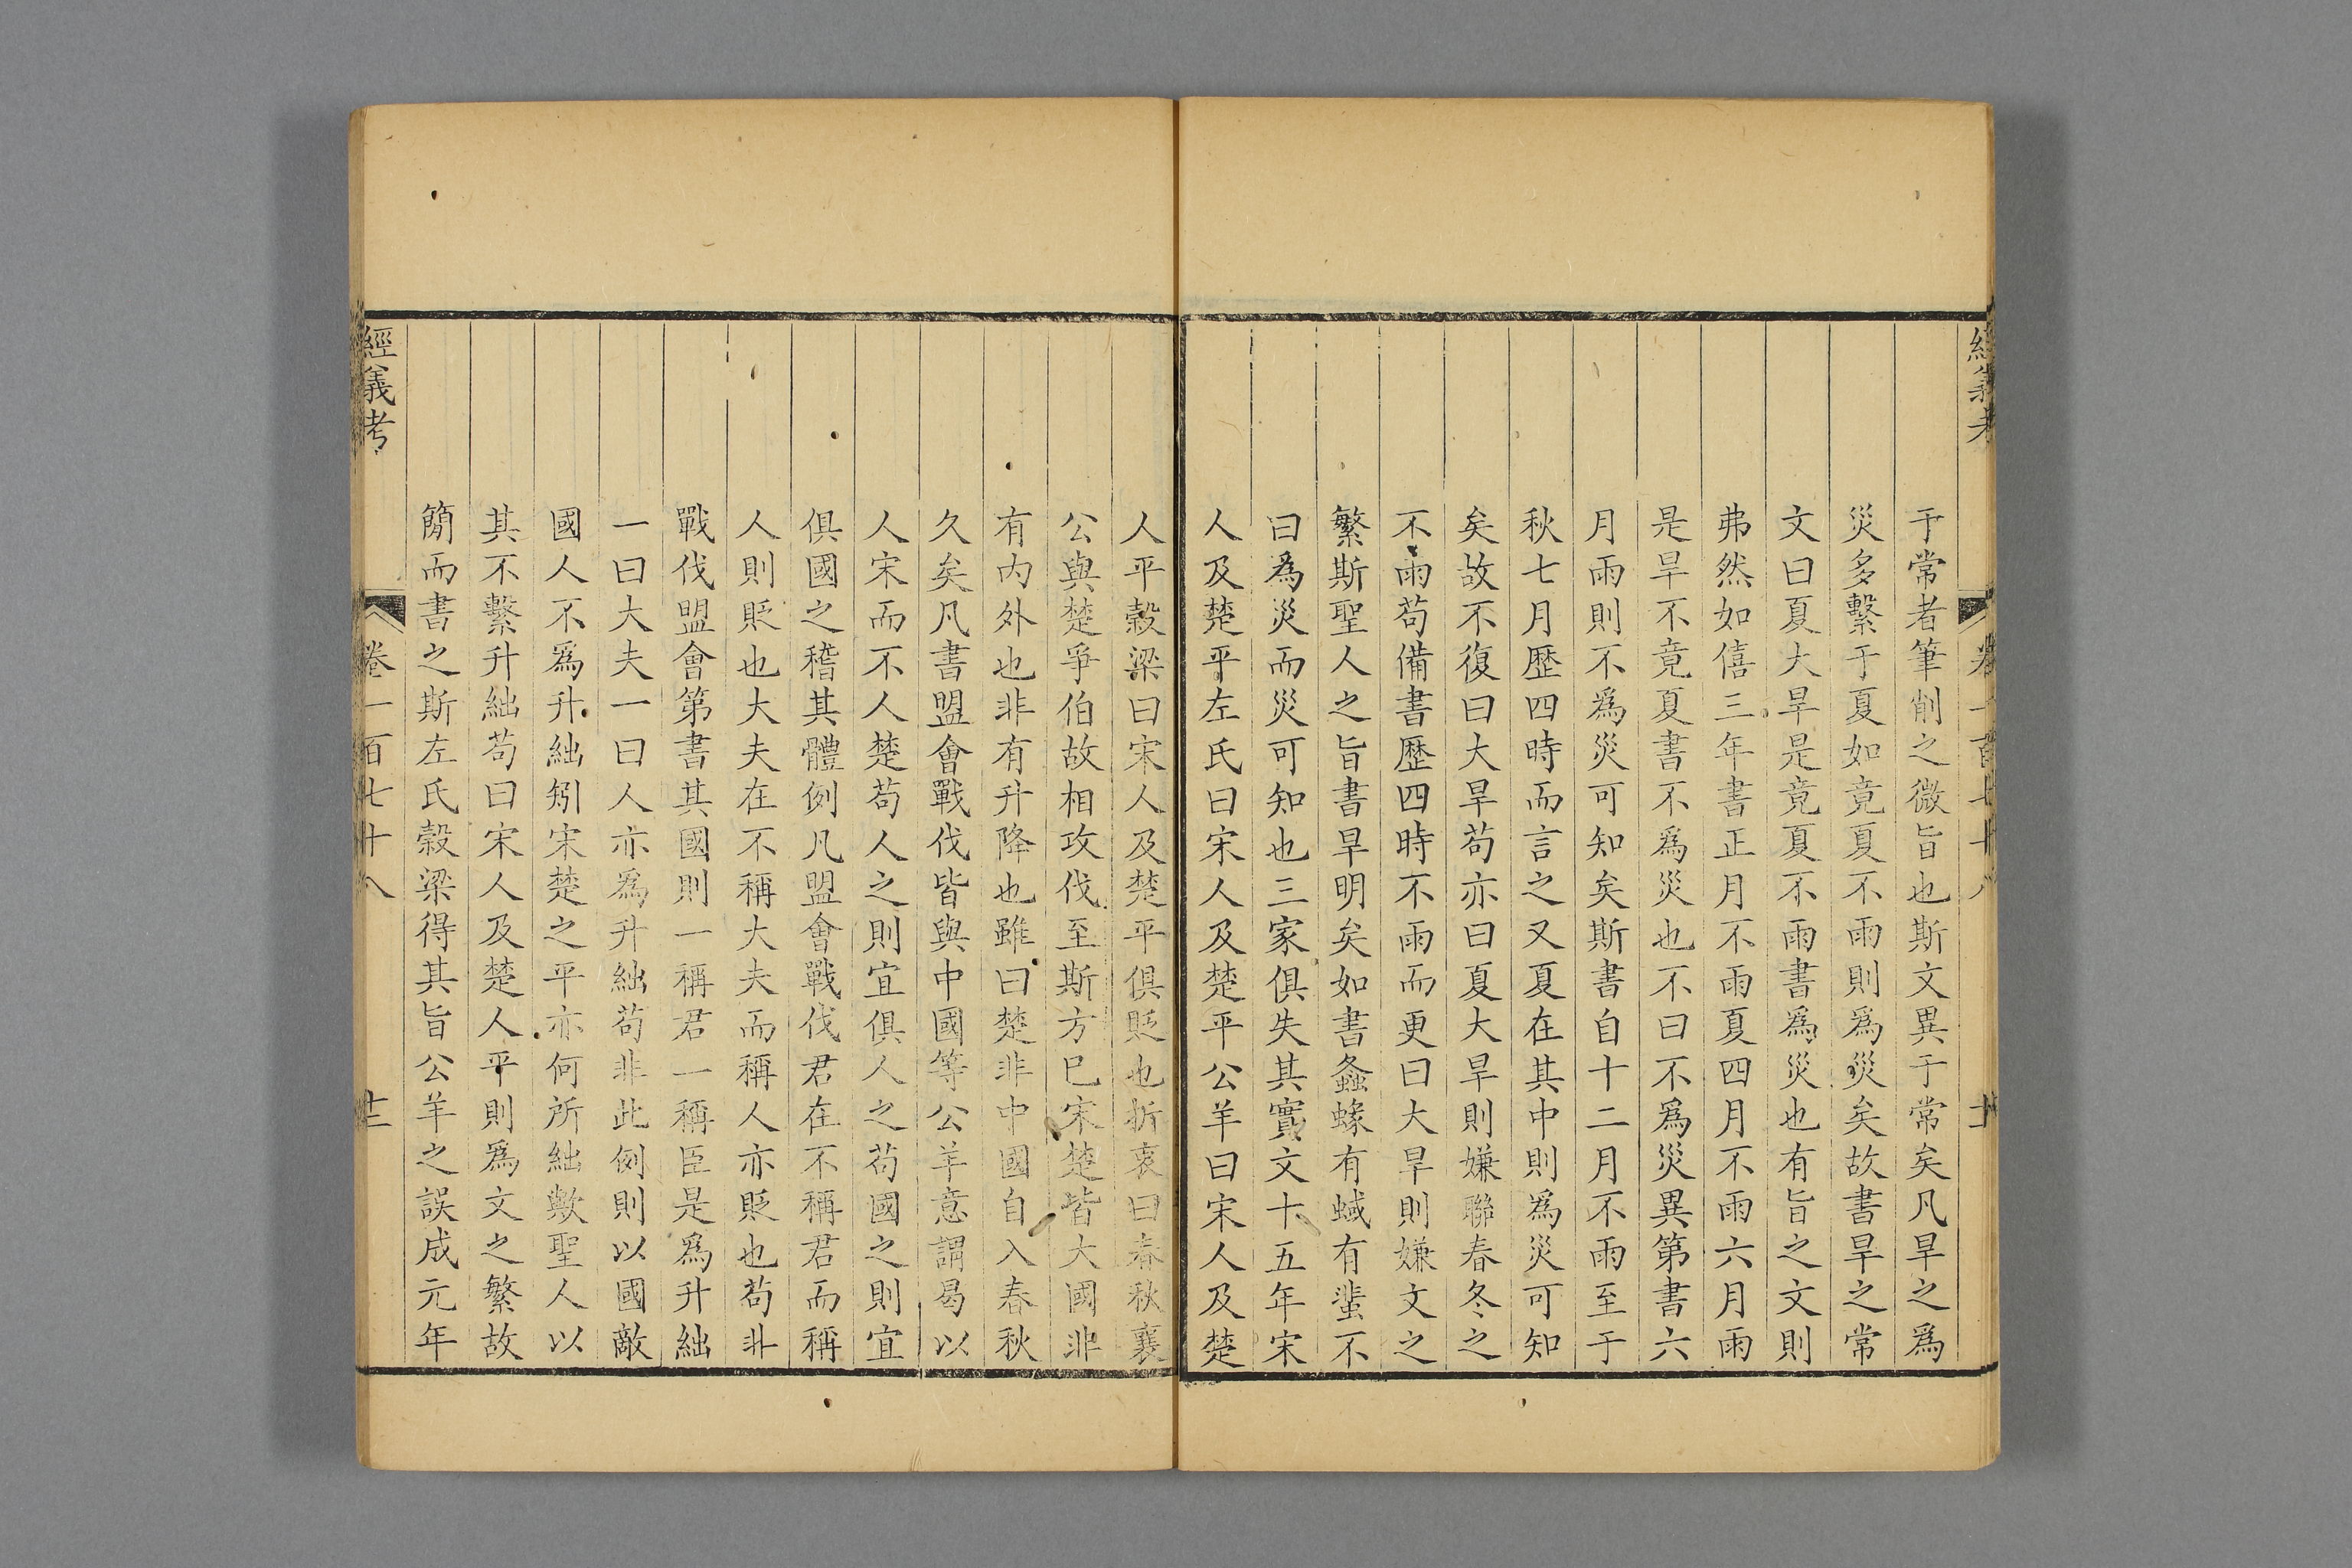 于常者筆削之微旨也斯文異于常矣凡旱之爲
災多繫于夏如竟夏不雨則爲災矣故書旱之常
文曰夏大旱是竟夏不雨書爲災也有旨之文則
弗然如僖三年書正月不雨夏四月不雨六月雨
是旱不竟夏書不爲災也不曰不爲災異第書六
月雨則不爲災可知矣斯書自十二月不雨至于
秋七月歷四時而言之又夏在其中則爲災可知
矣故不復曰大旱苟亦曰夏大旱則嫌聯春冬之
不雨苟備書歷四時不雨而更曰大旱則嫌文之
繁斯聖人之旨書旱明矣如書螽蝝有蜮有蜚不
曰爲災而災可知也三家俱失其實文十五年宋
人及楚平左氏曰宋人及楚平公羊曰宋人及楚
人平穀梁曰宋人及楚平俱貶也折衷曰春秋襄
公與楚爭伯故相攻伐至斯方巳宋楚皆大國非
有內外也非有升降也雖曰楚非中國自入春秋
久矣凡書盟會戰伐皆與中國等公羊意謂曷以
人宋而不人楚苟人之則宜俱人之苟國之則宜
俱國之稽其體例凡盟會戰伐君在不稱君而稱
人則貶也大夫在不稱大夫而稱人亦貶也苟非
戰伐盟會第書其國則一稱君一稱臣是爲升絀
一曰大夫一曰人亦爲升絀苟非此例則以國敵
國人不爲升絀矧宋楚之平亦何所絀歟聖人以
其不繫升絀苟曰宋人及楚人平則爲文之繁故
簡而書之斯左氏穀梁得其旨公羊之誤成元年
經義考
卷一百七十八
十二